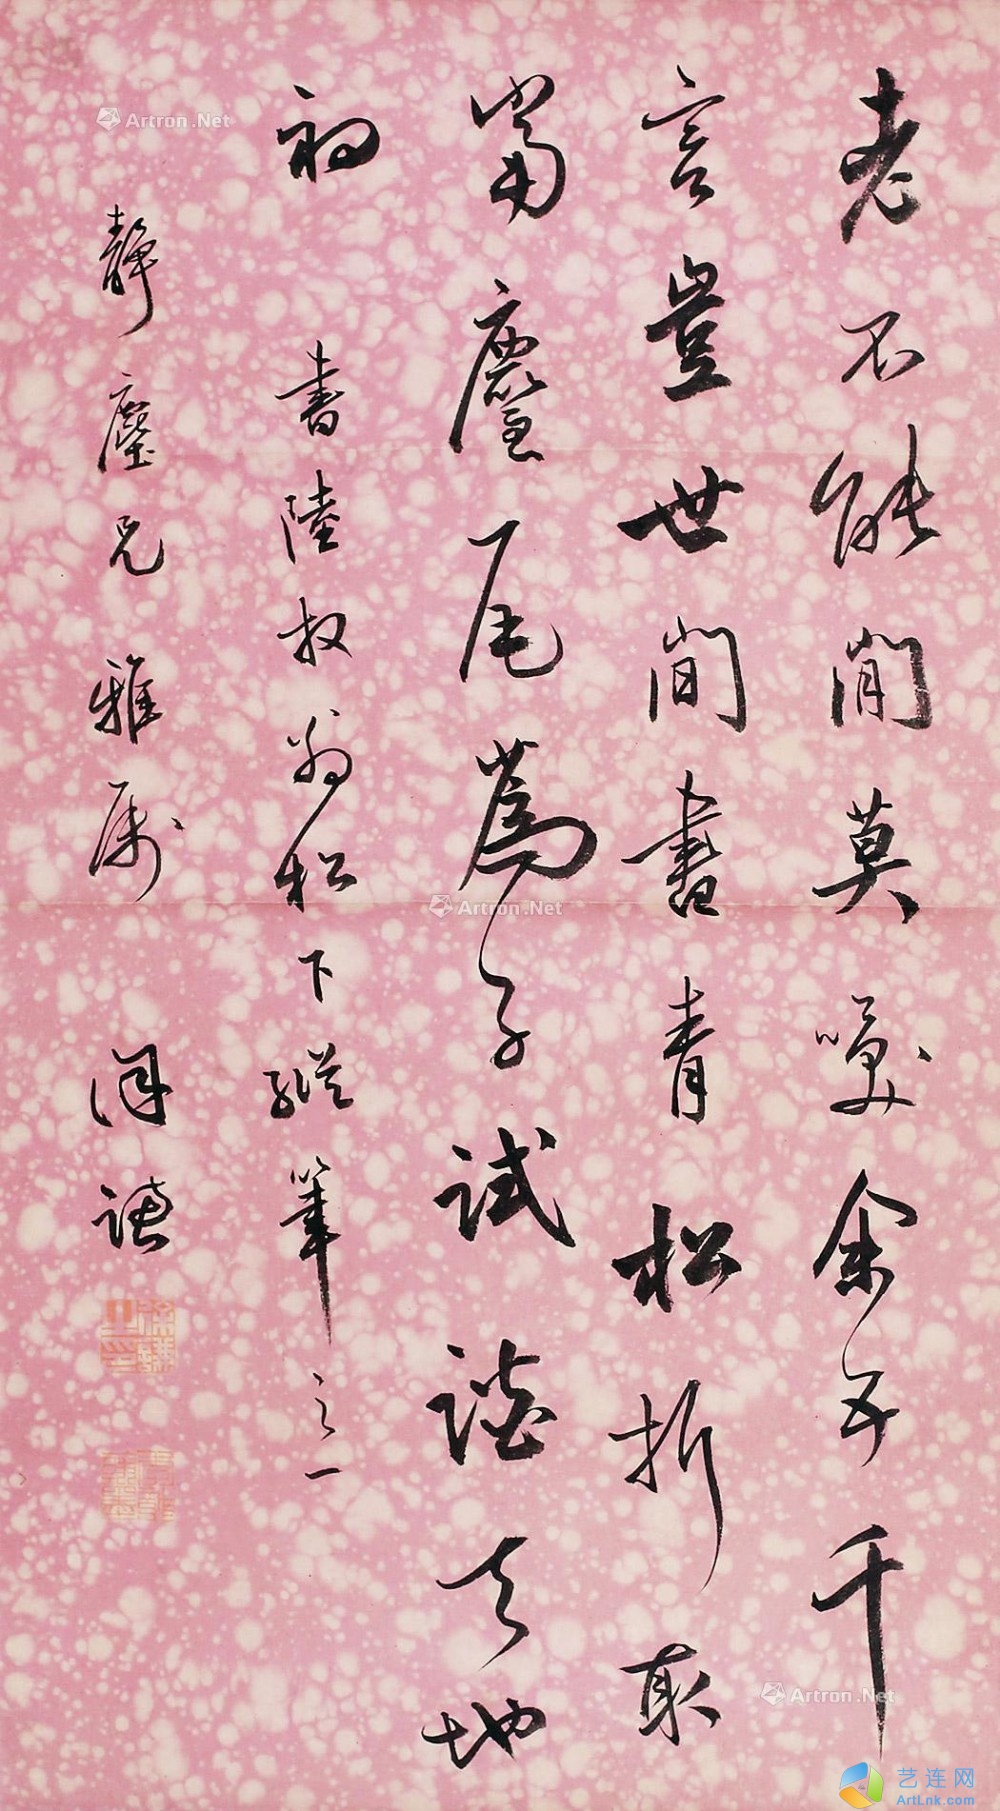 老不能閒莫咲余五千
言豈世間書青松折取
當麈尾為子試談天地
初 書陸放翁松下縱筆之一
靜塵兄雅屬
Artron.Net
Artron.Net
Artron.Net
艺连网
ArtLnk.com